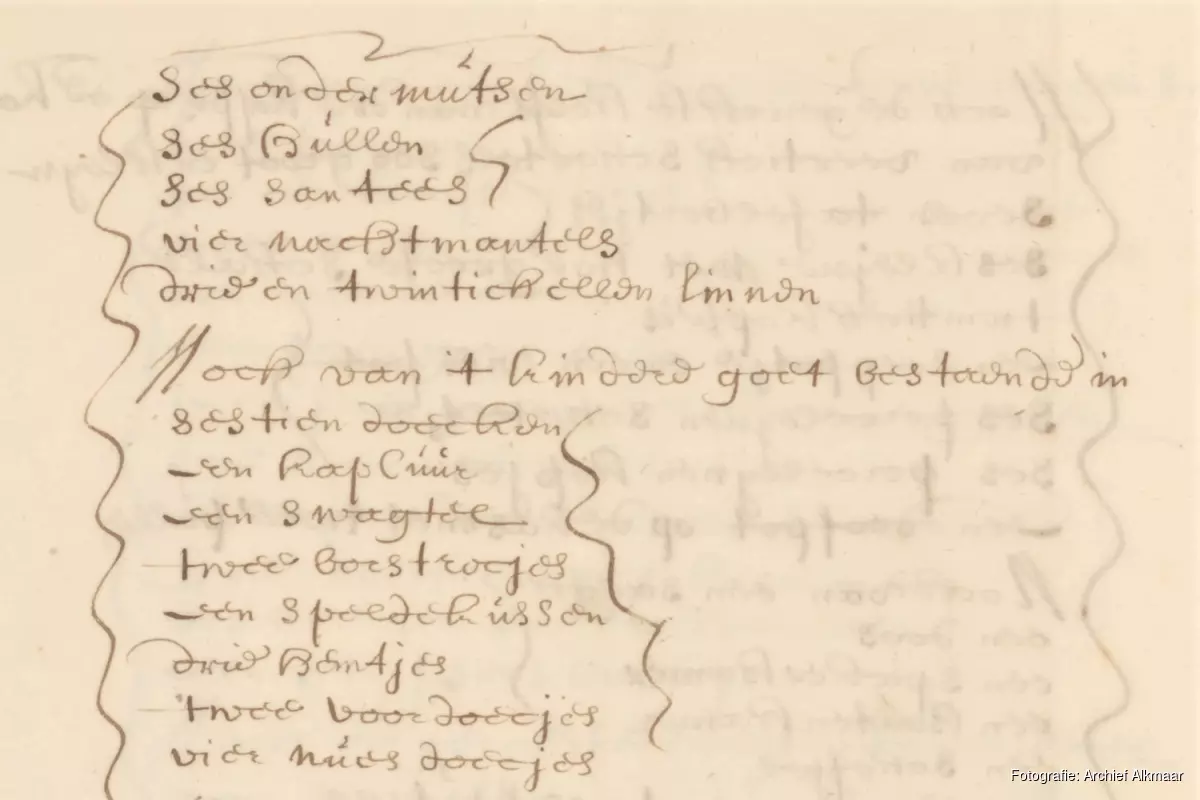 ses onder mutsen
ses hullen
ses santees
vier nachtmantels
drie en twintich ellen linnen
Noch van it kindere goet bestaende in
sestien doecken
een kap luur
een swagtel
twee borstrocjes
een speldekussen
drie hemtjes
twee voordoecjes
vier nues doecjes
Fotografie: Archief Alkmaar